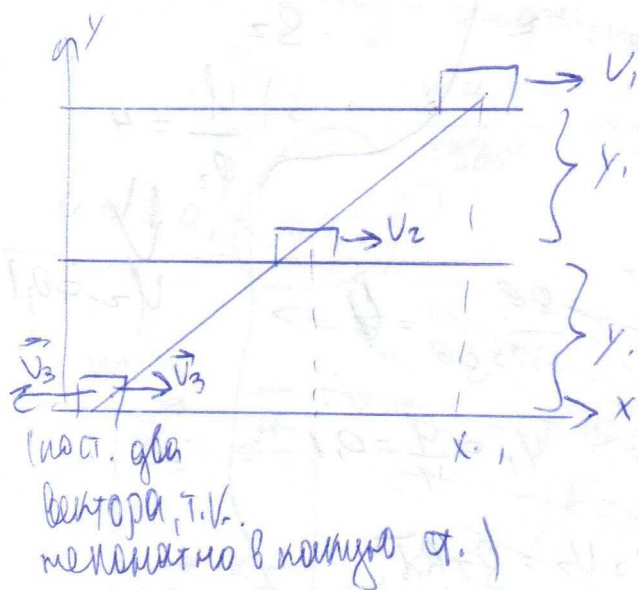 y
V₁
y₁
V₂
y₁
V⃗₃ V⃗₃
x
(пост. два x₁
вектора, т.к.
непонятно в какую ст.)